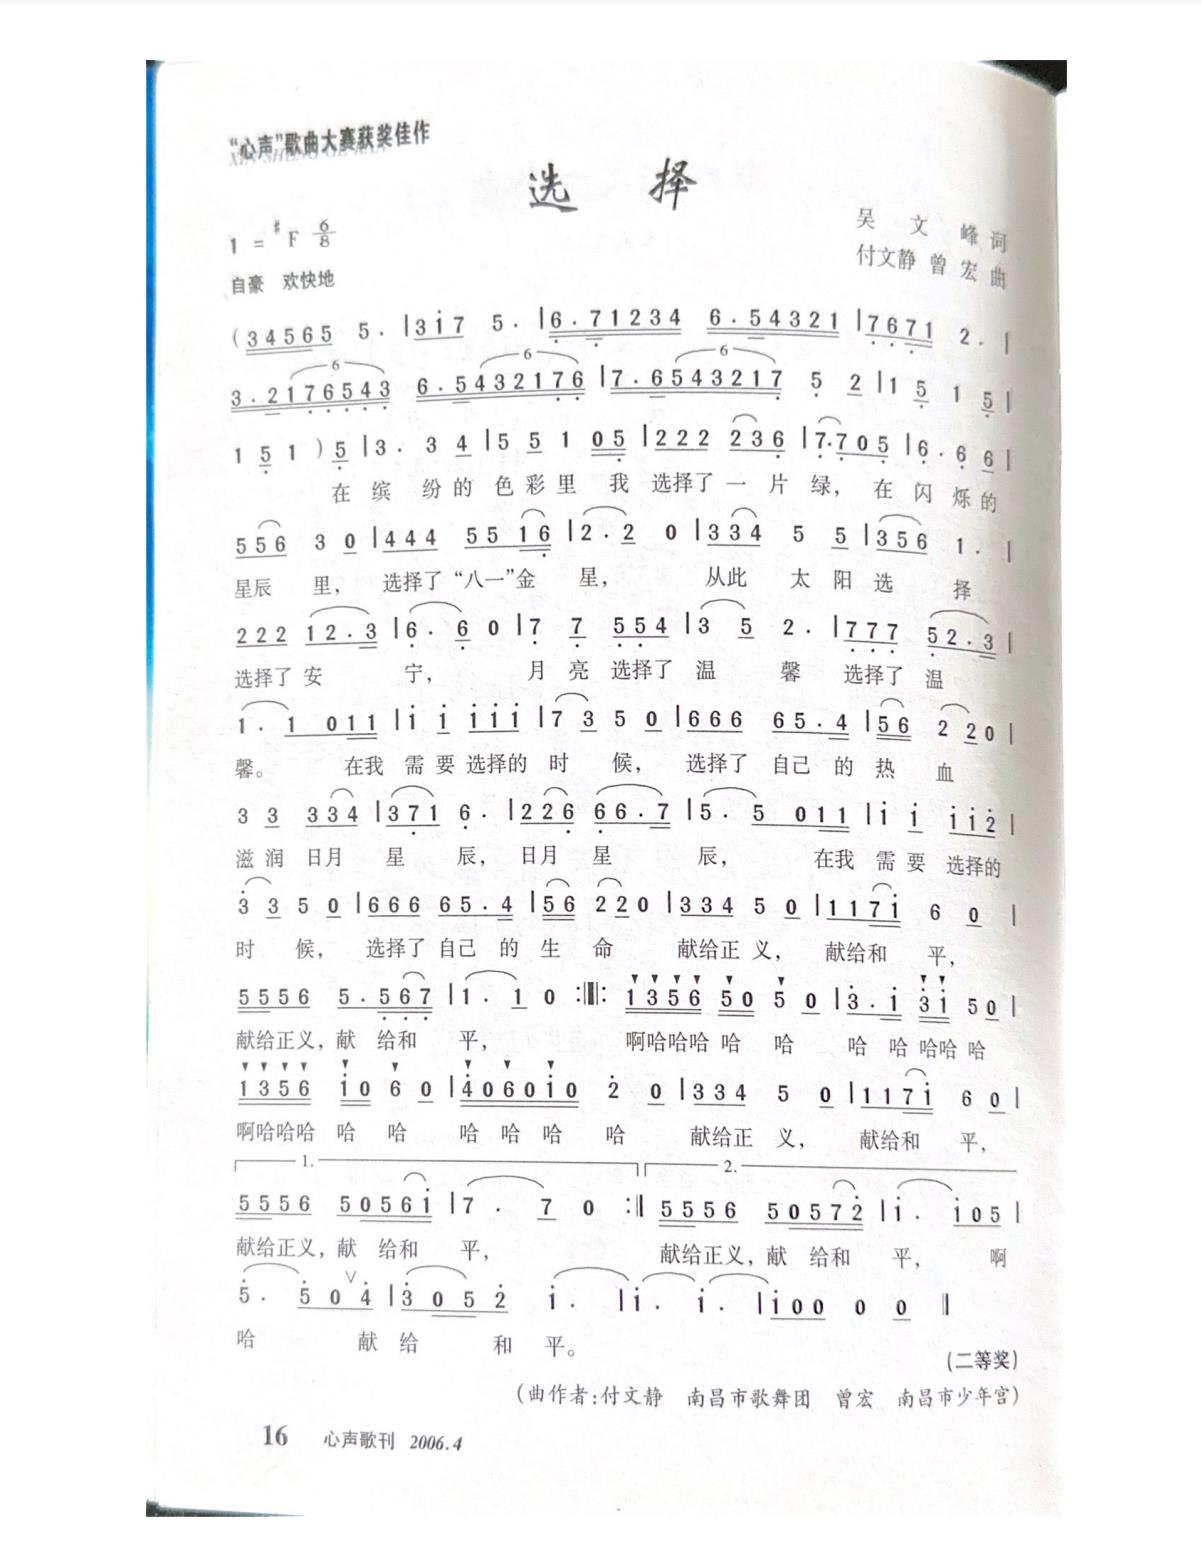 “心声”歌曲大赛获奖佳作
XIN SHENG GE KAN
选 择
1 = ♯F 6/8
自豪 欢快地
吴 文 峰 词
付文静 曾 宏 曲
( 3 4 5 6 5 5 . | 3 i 7 5 . | 6 . 7 1 2 3 4 6 . 5 4 3 2 1 | 7 6 7 1 2 . |
6 6 6
3 . 2 1 7 6 5 4 3 6 . 5 4 3 2 1 7 6 | 7 . 6 5 4 3 2 1 7 5 2 | 1 5 1 5 |
1 5 1 ) 5 | 3 . 3 4 | 5 5 1 0 5 | 2 2 2 2 3 6 | 7 . 7 0 5 | 6 . 6 6 |
在 缤 纷 的 色 彩 里 我 选择了 一 片 绿， 在 闪 烁 的
5 5 6 3 0 | 4 4 4 5 5 1 6 | 2 . 2 0 | 3 3 4 5 5 | 3 5 6 1 . |
星辰 里， 选择了 “八一”金 星， 从此 太 阳 选 择
2 2 2 1 2 . 3 | 6 . 6 0 | 7 7 5 5 4 | 3 5 2 . | 7 7 7 5 2 . 3 |
选择了 安 宁， 月 亮 选择了 温 馨 选择了 温
1 . 1 0 1 1 | i i i i i | 7 3 5 0 | 6 6 6 6 5 . 4 | 5 6 2 2 0 |
馨。 在我 需 要 选择的 时 候， 选择了 自己 的 热 血
3 3 3 3 4 | 3 7 1 6 . | 2 2 6 6 6 . 7 | 5 . 5 0 1 1 | i i i i 2 |
滋 润 日月 星 辰， 日月 星 辰， 在我 需 要 选择的
3 3 5 0 | 6 6 6 6 5 . 4 | 5 6 2 2 0 | 3 3 4 5 0 | 1 1 7 i 6 0 |
时 候， 选择了 自己 的 生 命 献给正 义， 献给和 平，
5 5 5 6 5 . 5 6 7 | 1 . 1 0 :‖: 1 3 5 6 5 0 5 0 | 3 . i 3 i 5 0 |
献给正义，献 给和 平， 啊哈哈哈 哈 哈 哈 哈 哈哈 哈
1 3 5 6 i 0 6 0 | 4 0 6 0 i 0 2 0 | 3 3 4 5 0 | 1 1 7 i 6 0 |
啊哈哈哈 哈 哈 哈 哈 哈 哈 献给正 义， 献给和 平，
1. 2.
5 5 5 6 5 0 5 6 i | 7 . 7 0 :‖ 5 5 5 6 5 0 5 7 2 | i . i 0 5 |
献给正义，献 给和 平， 献给正义，献 给和 平， 啊
5 . 5 0 ∨ 4 | 3 0 5 2 i . | i . i . | i 0 0 0 0 ‖
哈 献 给 和 平。
(二等奖)
(曲作者:付文静 南昌市歌舞团 曾宏 南昌市少年宫)
16 心声歌刊 2006.4